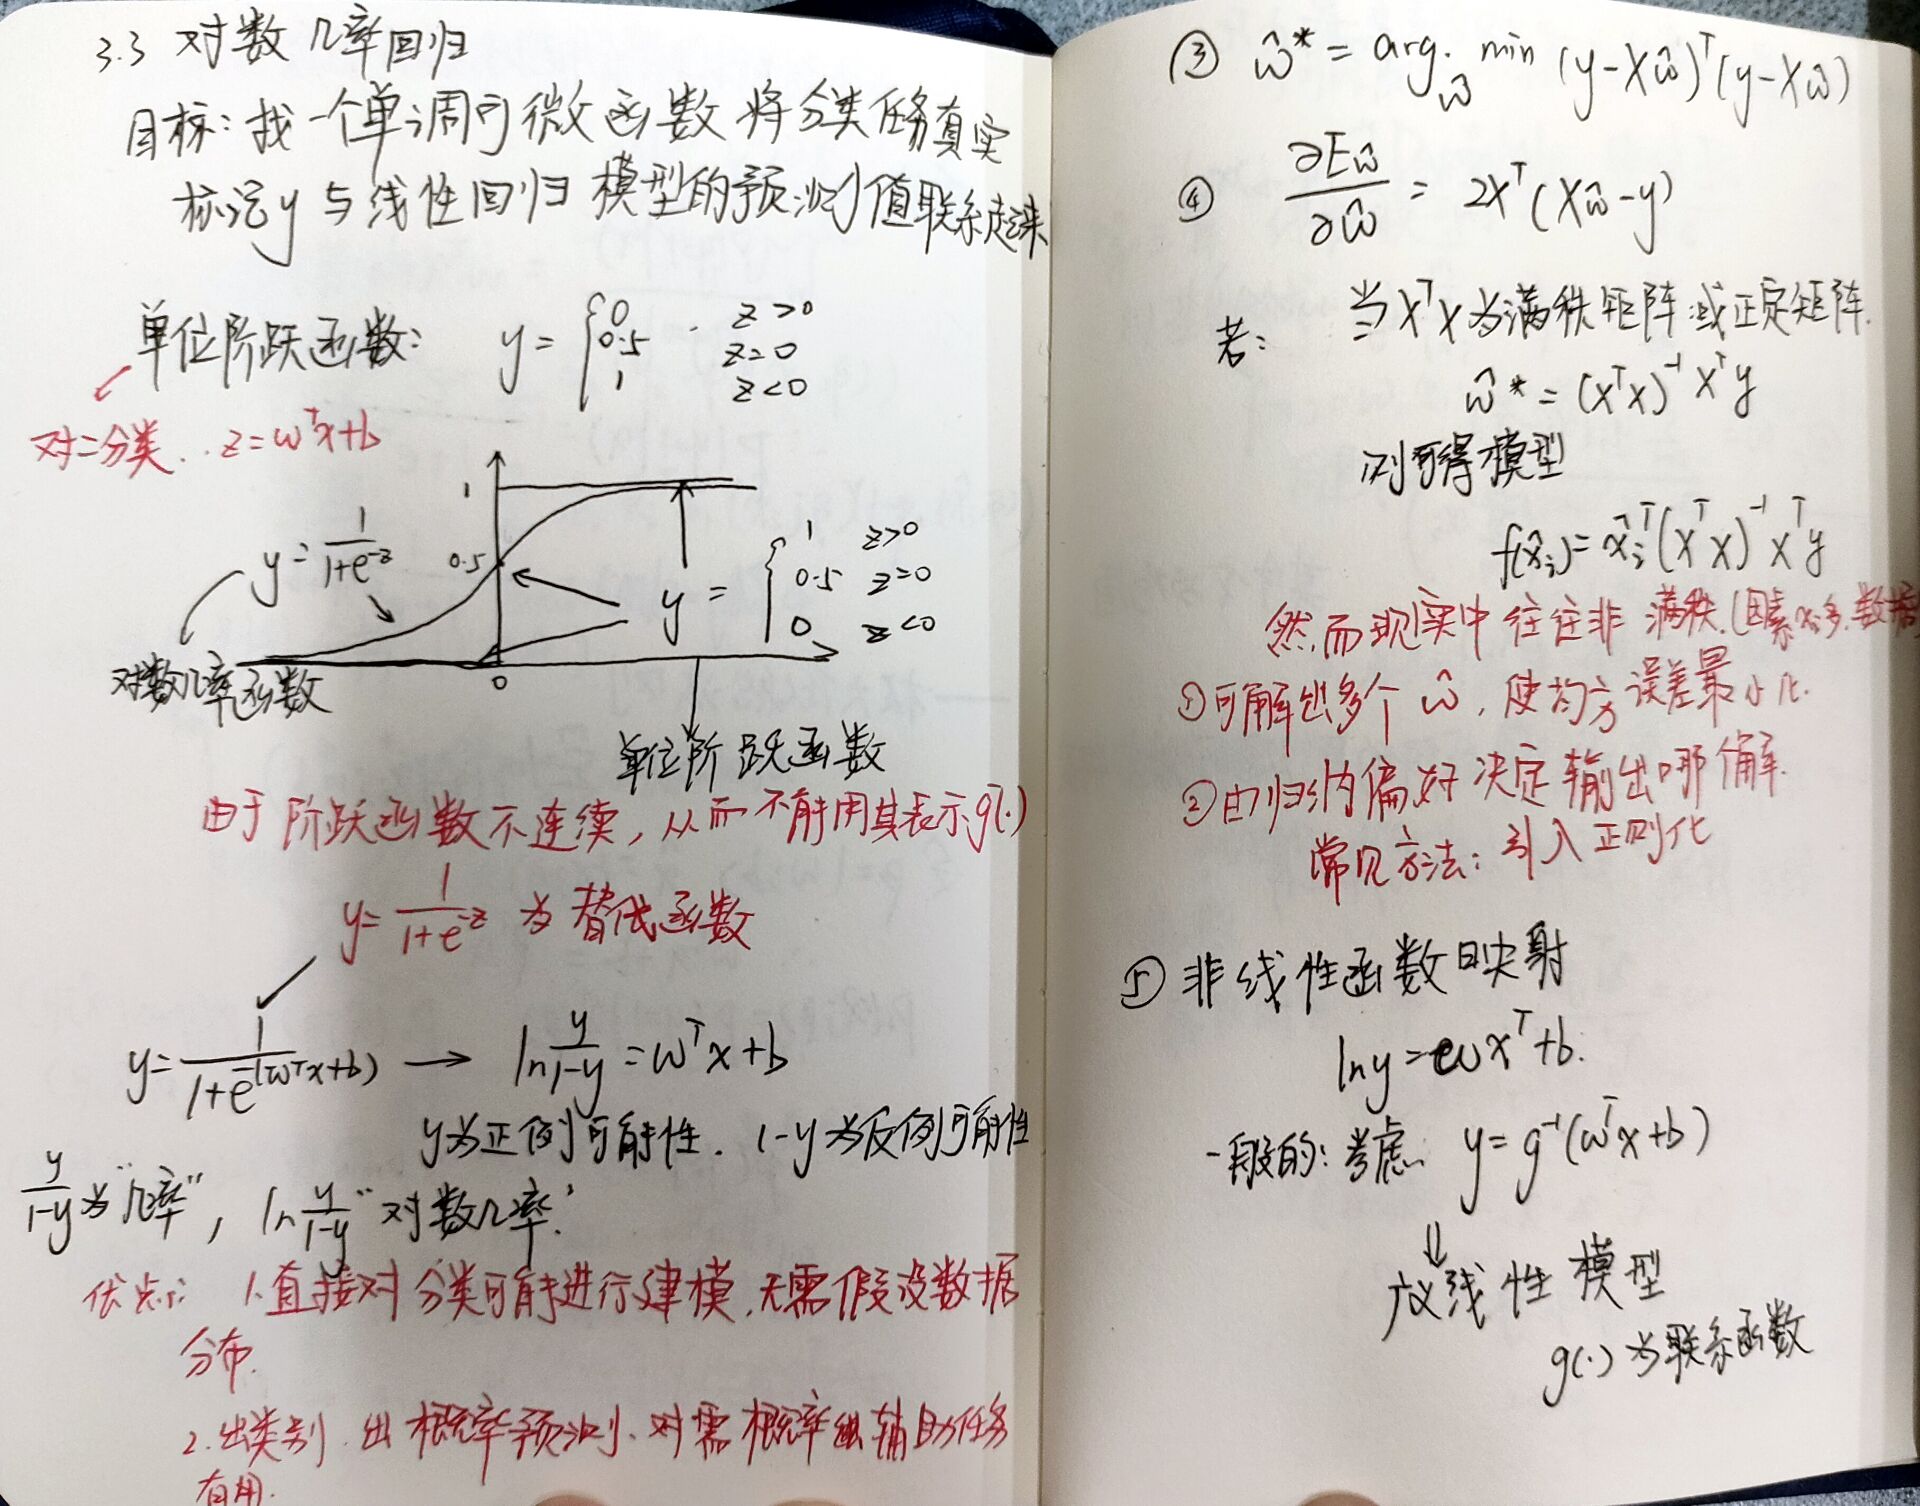 3.3 对数几率回归
目标：找一个单调可微函数将分类任务真实
标记y与线性回归模型的预测值联系起来
单位阶跃函数： y = { 0 z>0
0.5 z=0
1 z<0
对二分类.. z=wᵀx+b
1
y = 1/(1+e^-z)
0.5
y = { 1 z>0
0.5 z=0
0 z<0
对数几率函数
0
单位阶跃函数
由于阶跃函数不连续，从而不能用其表示g(.)
y = 1/(1+e^-z) 为替代函数
y = 1/(1+e^-(wᵀx+b)) → ln y/(1-y) = wᵀx+b
y为正例可能性. 1-y为反例可能性
y/(1-y) 为"几率", ln y/(1-y) "对数几率"
优点: 1.直接对分类可能进行建模.无需假设数据
分布.
2.出类别.出概率预测.对需概率 辅助任务
有用.
③ ŵ* = arg. min_ŵ (y-Xŵ)ᵀ(y-Xŵ)
④ ∂Eŵ/∂ŵ = 2Xᵀ(Xŵ-y)
若： 当XᵀX为满秩矩阵或正定矩阵.
ŵ* = (XᵀX)⁻¹Xᵀy
则可得模型
f(x̂ᵢ) = x̂ᵢᵀ(XᵀX)⁻¹Xᵀy
然而现实中往往非满秩.(因素x多.数据
①可解出多个ŵ, 使均方误差最小化.
②由归纳偏好决定输出哪个解.
常见方法：引入正则化
⑤ 非线性函数映射
ln y = wxᵀ+b.
一般的：考虑. y = g⁻¹(wᵀx+b)
⇓
广义线性模型
g(.)为联系函数